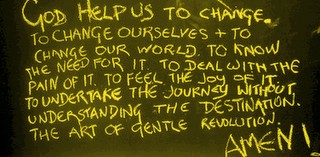 GOD HELP US TO CHANGE.
TO CHANGE OURSELVES + TO
CHANGE OUR WORLD. TO KNOW
THE NEED FOR IT. TO DEAL WITH THE
PAIN OF IT. TO FEEL THE JOY OF IT.
TO UNDERTAKE THE JOURNEY WITHOUT
UNDERSTANDING THE DESTINATION.
THE ART OF GENTLE REVOLUTION.
AMEN!